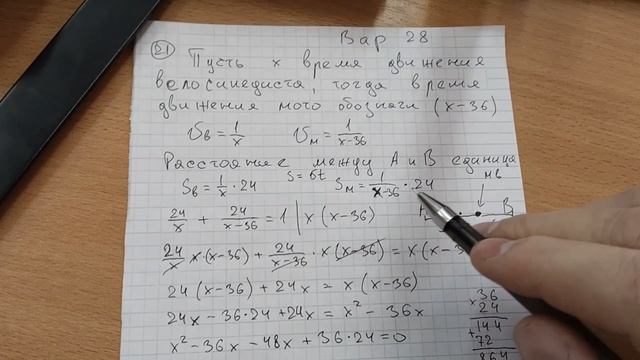 Вар 28
21 Пусть x время движения
велосипедиста, тогда время
движения мото обозначи (x-36)
υв = 1/x υм = 1/x-36
Расстояние между A и B единица
Sв = 1/x · 24 S = υt Sм = 1/x-36 · 24 мв
24/x + 24/x-36 = 1 | x(x-36) B
24/x x·(x-36) + 24/x-36 · x(x-36) = x(x-3
24(x-36) + 24x = x(x-36)
24x - 36·24 + 24x = x² - 36x
x² - 36x - 48x + 36·24 = 0
x 36
24
+ 144
72
864